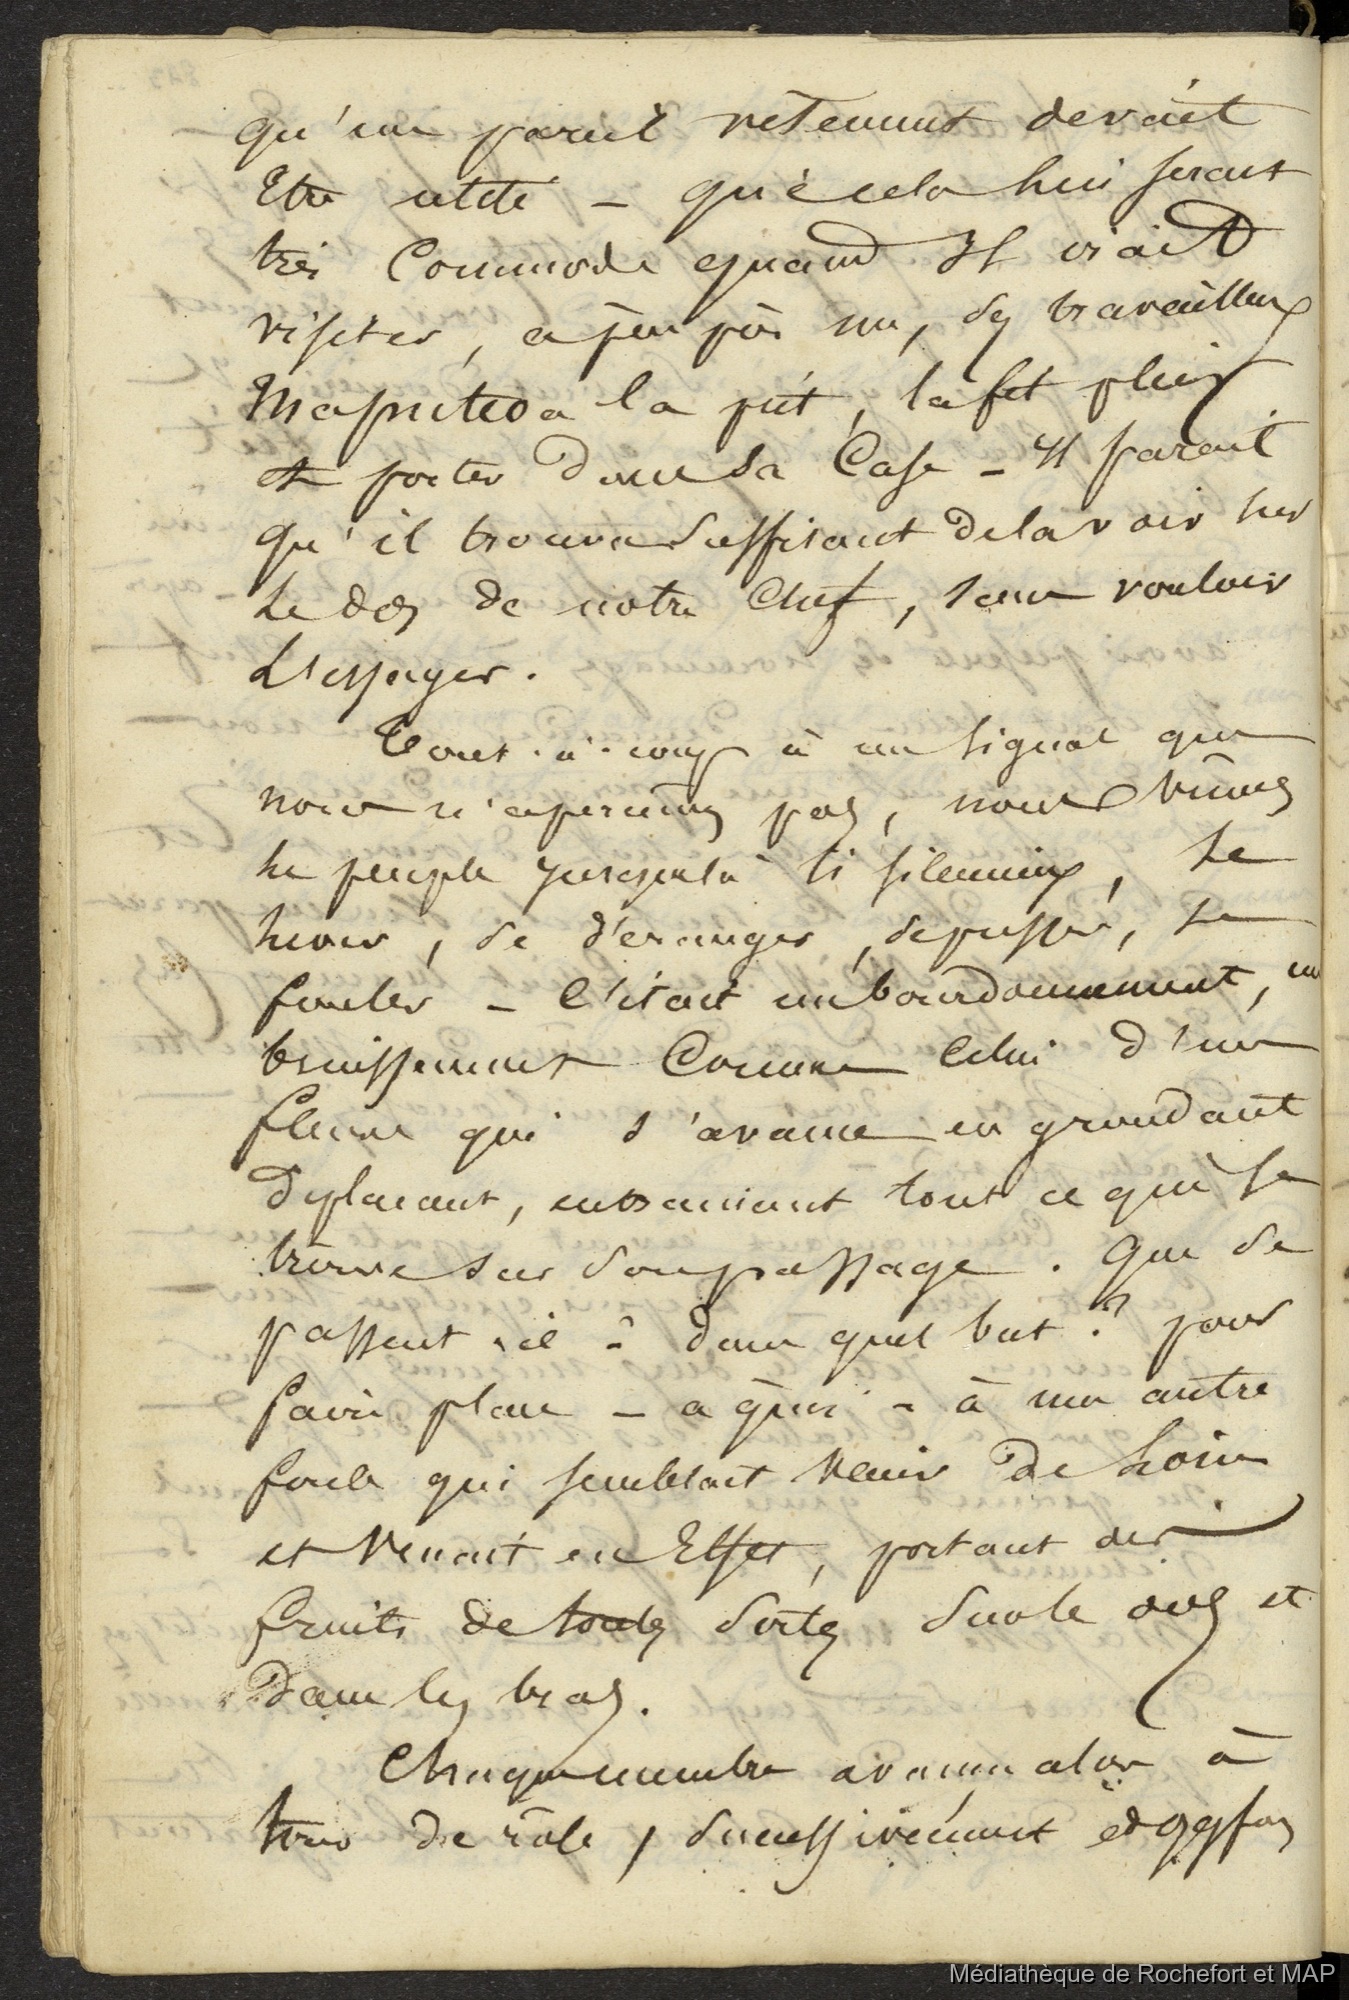 qu'un pareil vetement devait
Etre utile – que cela lui serait
très Commode quand Il irait
visiter, a peu près nu, ses travailleurs
Maputeo a la prit, la fit plier
et porter dans sa Case – Il parait
qu'il trouva suffisant de la voir sur
le dos de notre Chef, sans vouloir
L'essayer.
Tout-à-coup à un signal que
nous n'aperçumes pas, nous vîmes
le peuple jusques là si silencieux, se
lever, se déranger, se pousser, se
fouler – C'était un bourdonnement, un
bruissement Comme Celui d'un
fleuve qui s'avance en grondant
déplacant, entrainant tout ce qui se
trouve sur son passage. Que se
passait-il – dans quel but ? pour
faire place – a quoi – à une autre
foule qui semblait Venir de Loin
et Venait en Effet, portant des
fruits de toutes sortes sur le dos et
dans les bras.
Chaque membre avança alors à
tour de rôle, successivement
Médiathèque de Rochefort et MAP